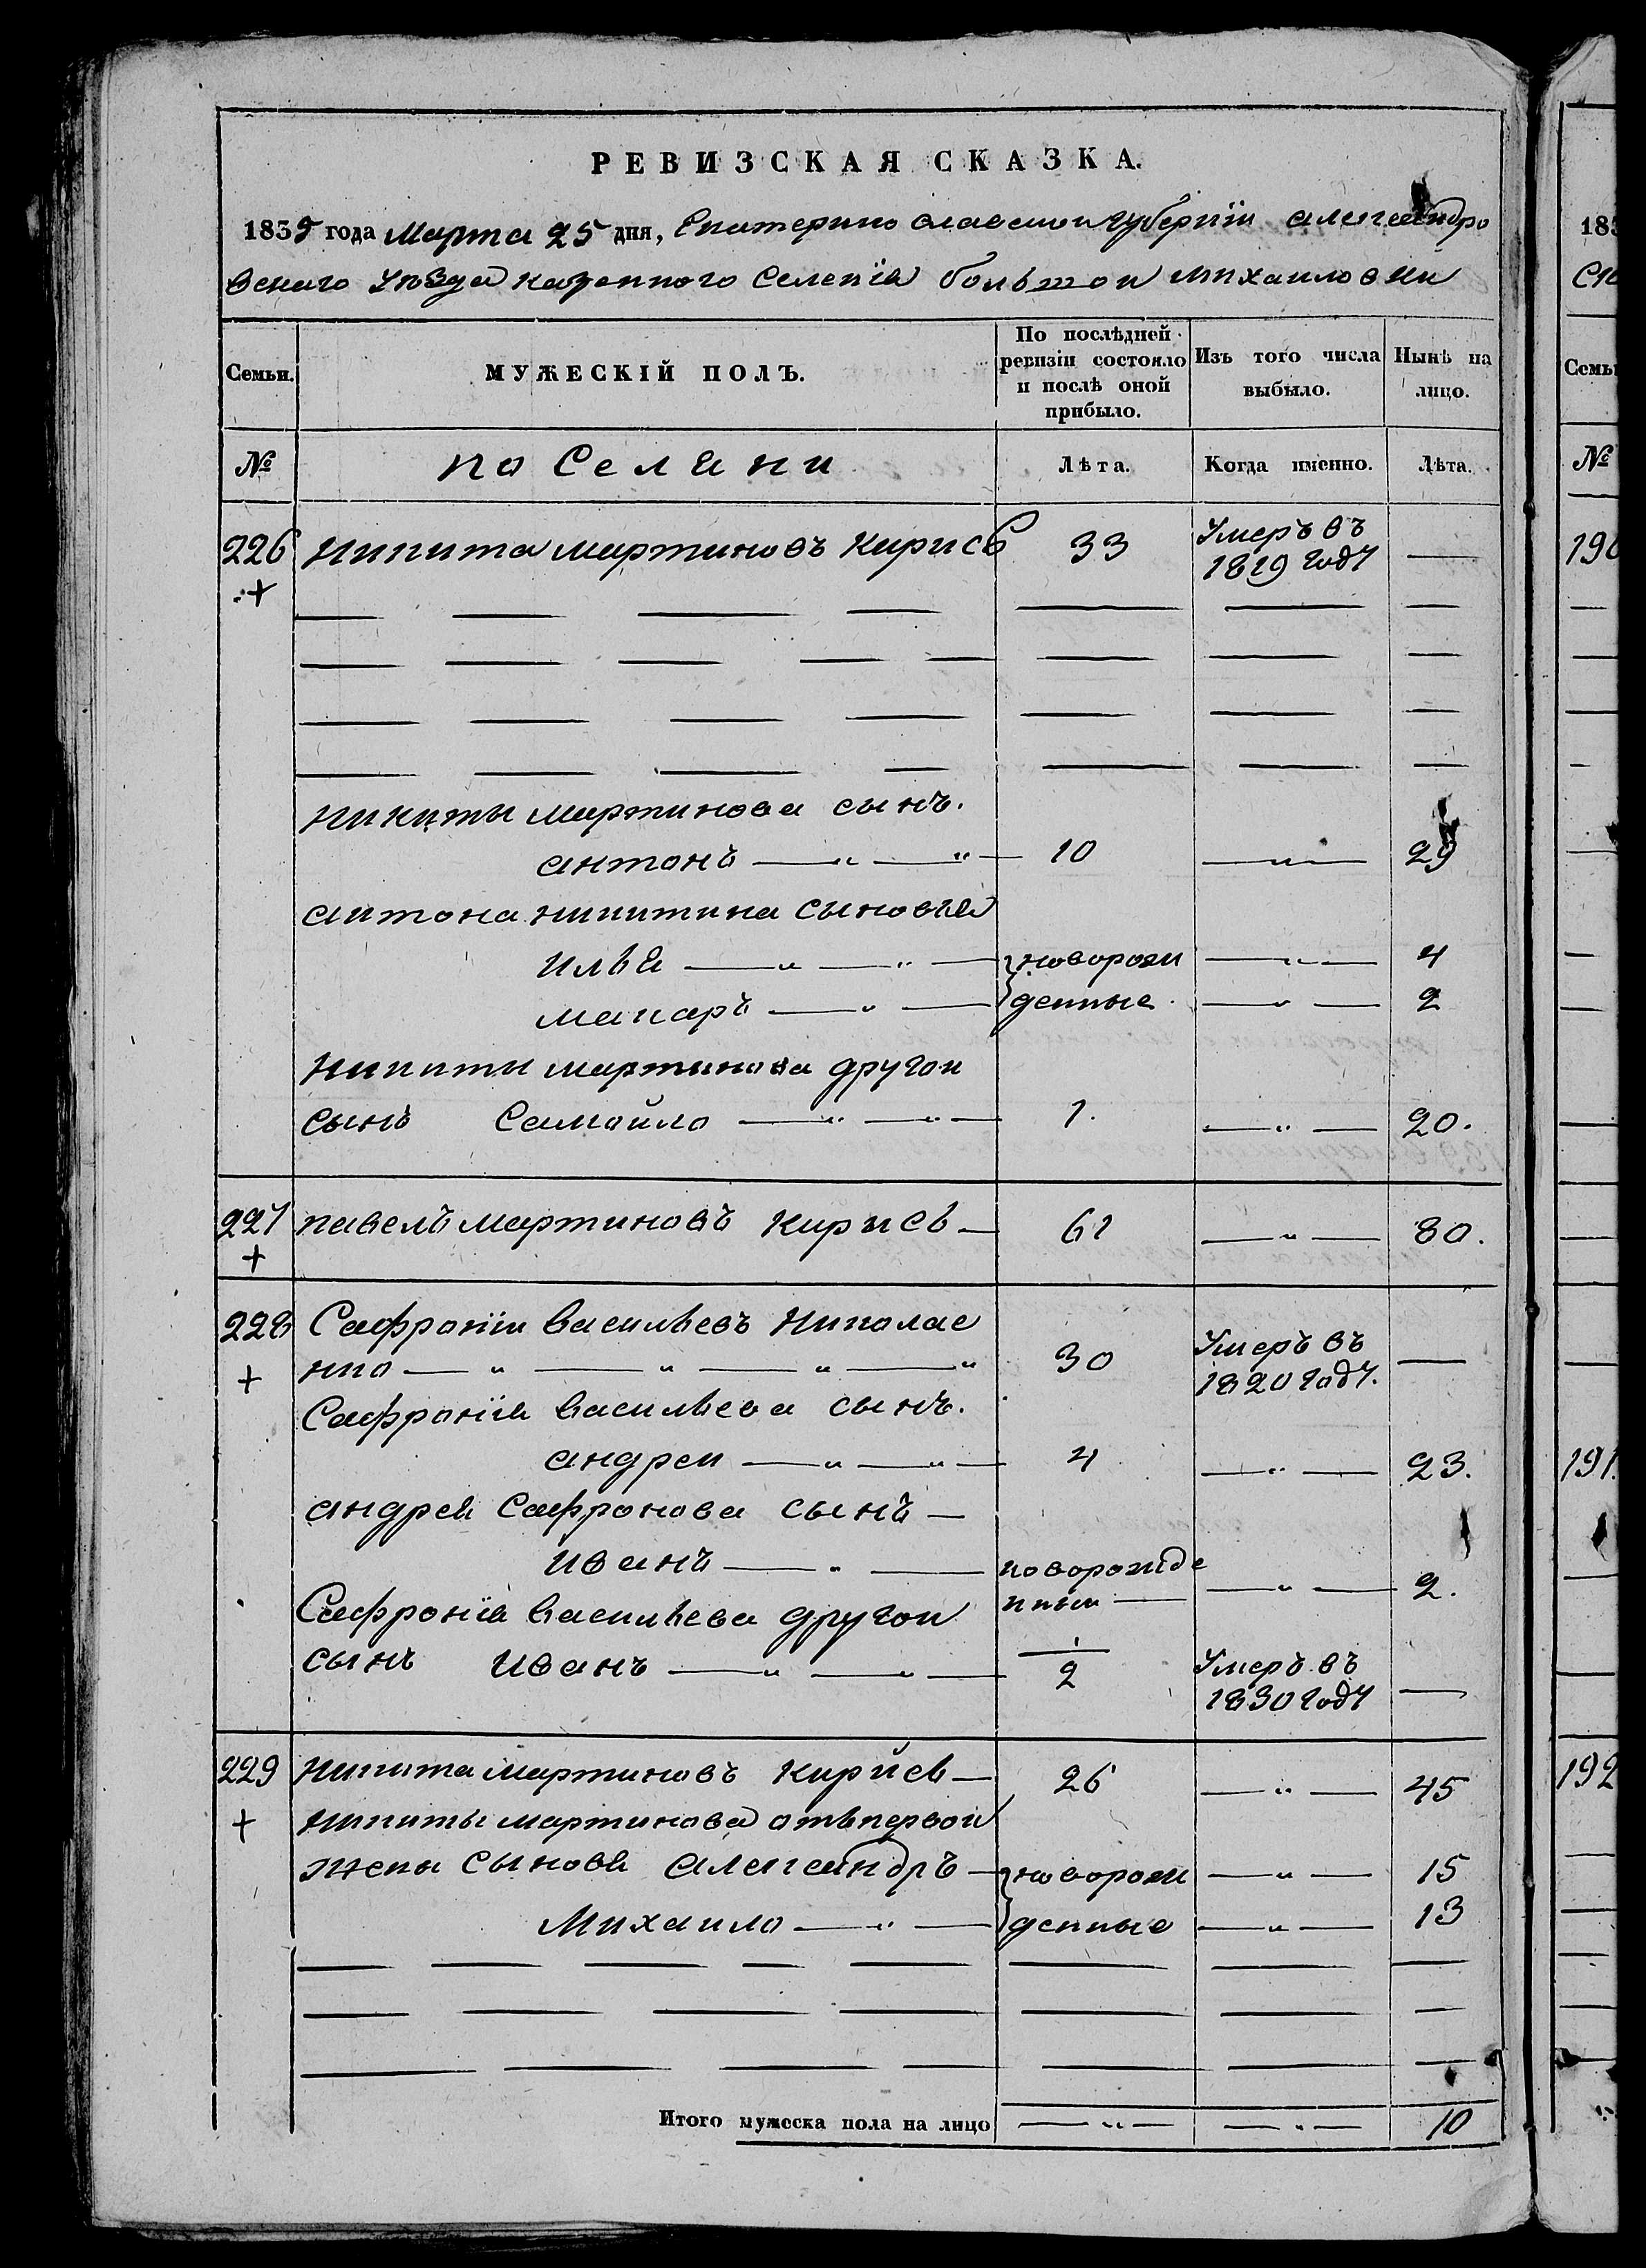 РЕВИЗСКАЯ СКАЗКА.
1835 года Марта 25 дня, Екатеринославской губернiи александро
вского Уѣзда казенного Селенiя большой михаиловки
Семьи.
МУЖЕСКIЙ ПОЛЪ.
По послѣдней ревизiи состояло и послѣ оной прибыло.
Изъ того числа выбыло.
Нынѣ на лицо.
№ поселяни Лѣта. Когда именно. Лѣта.
226 никита мартиновъ кирисъ 33 Умеръ въ 1819 году —
никиты мартинова сынъ.
антонъ — „ — „ — 10 — „ — 29
антона никитина сыновья
илья — „ — „ — новорож — „ — 4
макаръ — „ — денные — „ — 2
никиты мартинова другой
сынъ Самойло — „ — „ — 1. — „ — 20.
227 павелъ мартиновъ кирисъ — 61 — „ — 80.
228 Сафронiй васильевъ николае
нко — „ — „ — „ — „ 30 Умеръ въ 1820 году. —
Сафронiя васильева сынъ.
андрей — „ — „ — 4 — „ — 23.
андрея Сафронова сынъ —
иванъ — „ — новорожде
нный — — „ — 2.
Сафронiя васильева другой
сынъ иванъ — „ — „ — 2 Умеръ въ 1830 году —
229 никита мартиновъ кирйсь — 26 — „ — 45
никиты мартинова отъ первой
жены сыновя александръ — новорож — „ — 15
Михаило — „ — денные — „ — 13
Итого мужеска пола на лицо — „ — — „ — 10
183
Семьи
№
190
191.
192